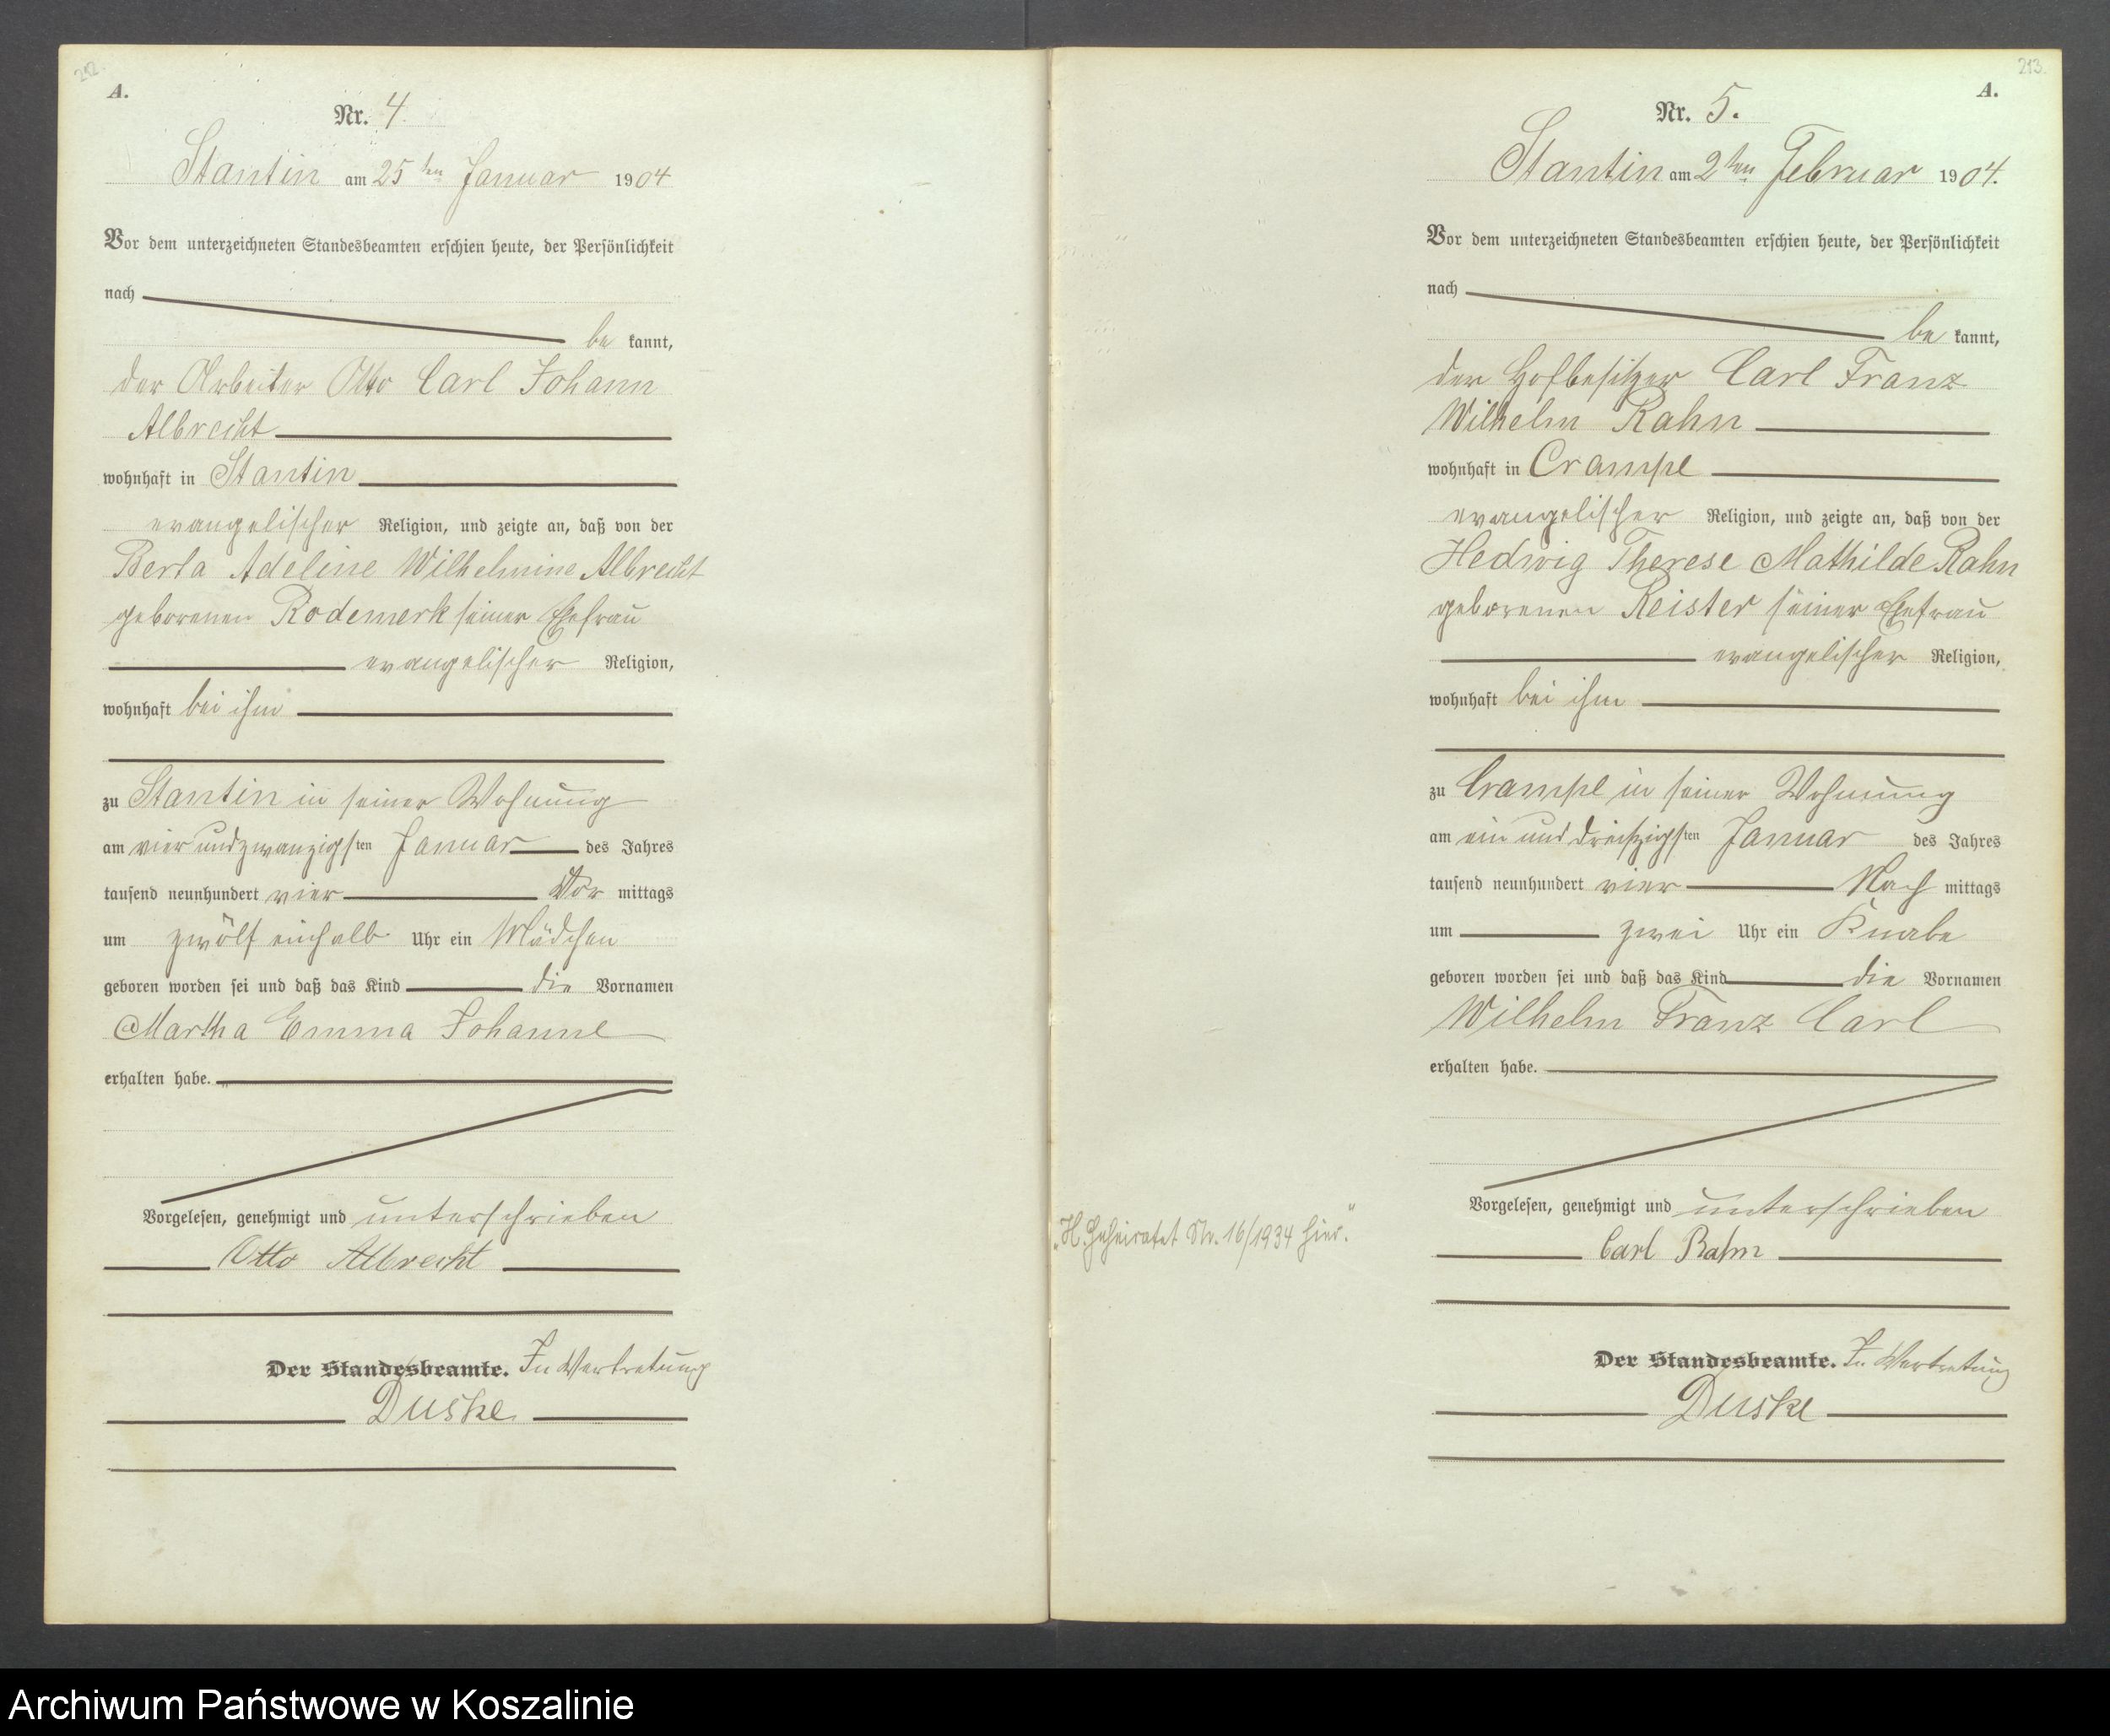 212.
A.
Nr. 4
Stantin am 25ten Januar 1904
Vor dem unterzeichneten Standesbeamten erschien heute, der Persönlichkeit
nach
be kannt,
der Arbeiter Otto Carl Johann
Albrecht
wohnhaft in Stantin
evangelischer Religion, und zeigte an, daß von der
Berta Adeline Wilhelmine Albrecht
geborenen Rodemerk seiner Ehefrau
evangelischer Religion,
wohnhaft bei ihm
zu Stantin in seiner Wohnung
am vier und zwanzigsten Januar des Jahres
tausend neunhundert vier Vor mittags
um zwölf einhalb Uhr ein Mädchen
geboren worden sei und daß das Kind die Vornamen
Martha Emma Johanne
erhalten habe.
Vorgelesen, genehmigt und unterschrieben
Otto Albrecht
Der Standesbeamte. In Vertretung
Duske
213.
A.
Nr. 5.
Stantin am 2ten Februar 1904.
Vor dem unterzeichneten Standesbeamten erschien heute, der Persönlichkeit
nach
be kannt,
der Hofbesitzer Carl Franz
Wilhelm Rahn
wohnhaft in Crampe
evangelischer Religion, und zeigte an, daß von der
Hedwig Therese Mathilde Rahn
geborenen Reister seiner Ehefrau
evangelischer Religion,
wohnhaft bei ihm
zu Crampe in seiner Wohnung
am ein und dreißigsten Januar des Jahres
tausend neunhundert vier Nach mittags
um zwei Uhr ein Knabe
geboren worden sei und daß das Kind die Vornamen
Wilhelm Franz Carl
erhalten habe.
Vorgelesen, genehmigt und unterschrieben
„H. Geheiratet Nr. 16/1934 hier."
Carl Rahn
Der Standesbeamte. In Vertretung
Duske
Archiwum Państwowe w Koszalinie